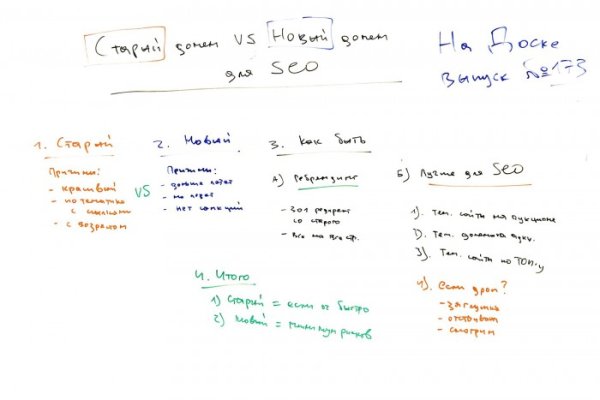 Старый домен VS Новый домен
для SEO
На Доске
Выпуск №173
1. Старый
Причины:
- красивый
- по тематике
с ссылками
- с возрастом
VS
2. Новый
Причины:
- дольше
- не
- нет санкций
3. Как быть
А) Ребрендинг
- 301 редирект
со старого
- Все на все стр.
Б) Лучше для SEO
1). Тем. сайты на аукционе
2). Тем. домены аукц.
3). Тем. сайты по ТОП-у
4). Если дроп?
- заглушка
- отстаивам
- смотрим
4. Итого
1) Старый = если ок быстро
2) Новый = минимум рисков